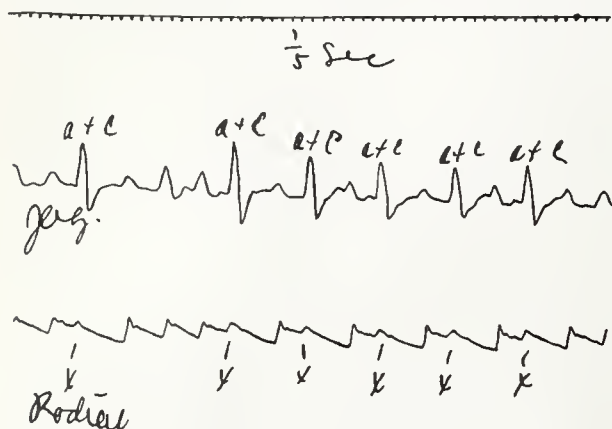 1/5 Sec
a+c a+c a+c a+c a+c a+c
Jug.
x x x x x x
Radial